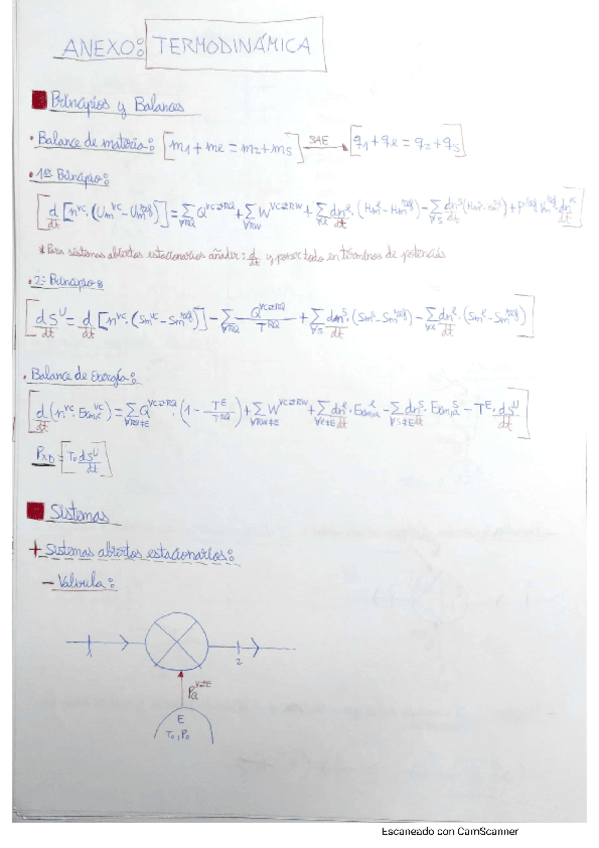 ANEXO: TERMODINÁMICA
Principios y Balances
• Balance de materia: [m₁ + me = m₂ + ms] SAE → [q₁ + qe = q₂ + qs]
• 1er Principio:
[d/dt [n^VC · (Um^VC − Um^)] = Σ Q^VC⇄RQ + Σ W^VC⇄RW + Σ dn^e/dt · (Hm^e − Hm^) − Σ dn^s/dt
* Para sistemas abiertos estacionarios añader: d/dt y poner todo en términos de potencias
• 2º Principio:
[dS^U/dt = d/dt [n^VC · (Sm^VC − Sm^)] − Σ Q^VC⇄RQ/T^RQ + Σ dn^s/dt · (Sm^s − Sm^) − Σ dn^e/dt · (Sm^e − Sm^)]
• Balance de Energía:
[d/dt (n^VC · Exm,a^VC) = Σ Q^VC⇄RQ · (1 − T^E/T^RQ) + Σ W^VC⇄RW + Σ dn^e/dt · Exm,a^e − Σ dn^s/dt · Exm,a^s − T^E · dS^U/dt]
P_xD = [T₀ dS^U/dt]
Sistemas
+ Sistemas abiertos estacionarios:
– Válvula:
1
2
Pa
E
T₀, P₀
Escaneado con CamScanner